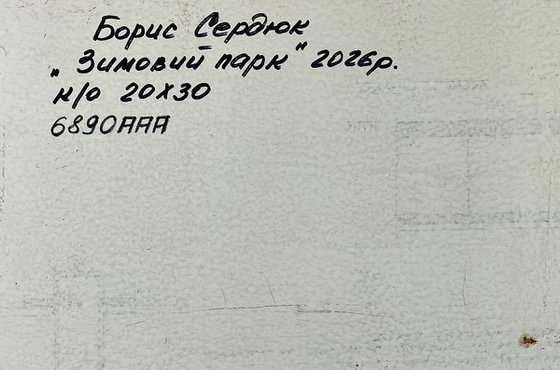 Борис Сердюк
„Зимовий парк" 2026р.
к/о 20х30
6890ААА